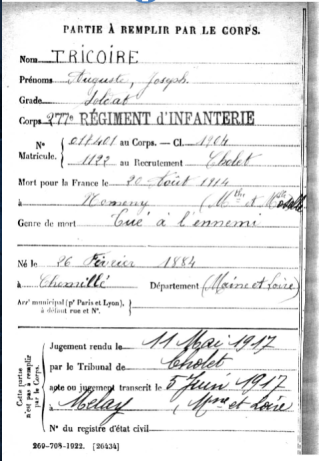 PARTIE À REMPLIR PAR LE CORPS.
Nom TRICOIRE
Prénoms Auguste, Joseph
Grade Soldat
Corps 277e RÉGIMENT d'INFANTERIE
N° Matricule. { 017401 au Corps. — Cl. 1904
1122 au Recrutement Cholet
Mort pour la France le 20 Août 1914
à Nomeny (Mthe et Mlle
Genre de mort Tué à l'ennemi
Né le 26 Février 1884
à Chemillé Département (Maine et Loire)
Arrt municipal (pr Paris et Lyon),
à défaut rue et N°.
Cette partie n'est pas à remplir par le Corps.
Jugement rendu le 11 Mai 1917
par le Tribunal de Cholet
acte ou jugement transcrit le 5 Juin 1917
à Melay (Mne et Loire
N° du registre d'état civil
269-708-1922. [26434]